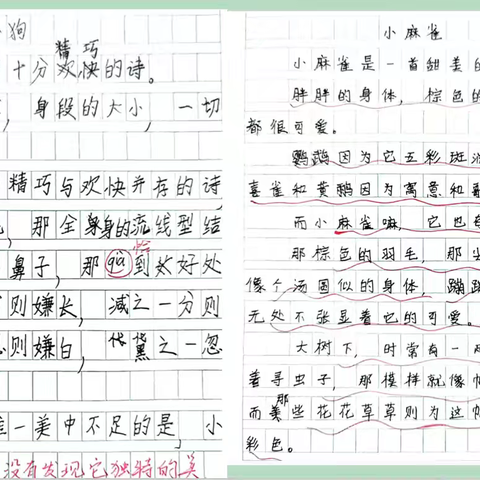 狗
精巧
十分欢快的诗。
，身段的大小，一切
精巧与欢快并存的诗，
，那全身的流线型结
恰
鼻子，那qià到好处
则嫌长，减之一分则
则嫌白，黛之一忽
一美中不足的是，小
没有发现它独特的美
小麻雀
小麻雀是一首甜美的
胖胖的身体，棕色的
都很可爱。
鹦鹉因为它五彩斑
喜雀和黄鹂因为寓意和
而小麻雀嘛，它也
那棕色的羽毛，那
像个汤圆似的身体，蹦
无处不张显着它的可爱。
大树下，时常有一
着寻虫子，那模样就像
那
而美些花花草草则为这
彩色。